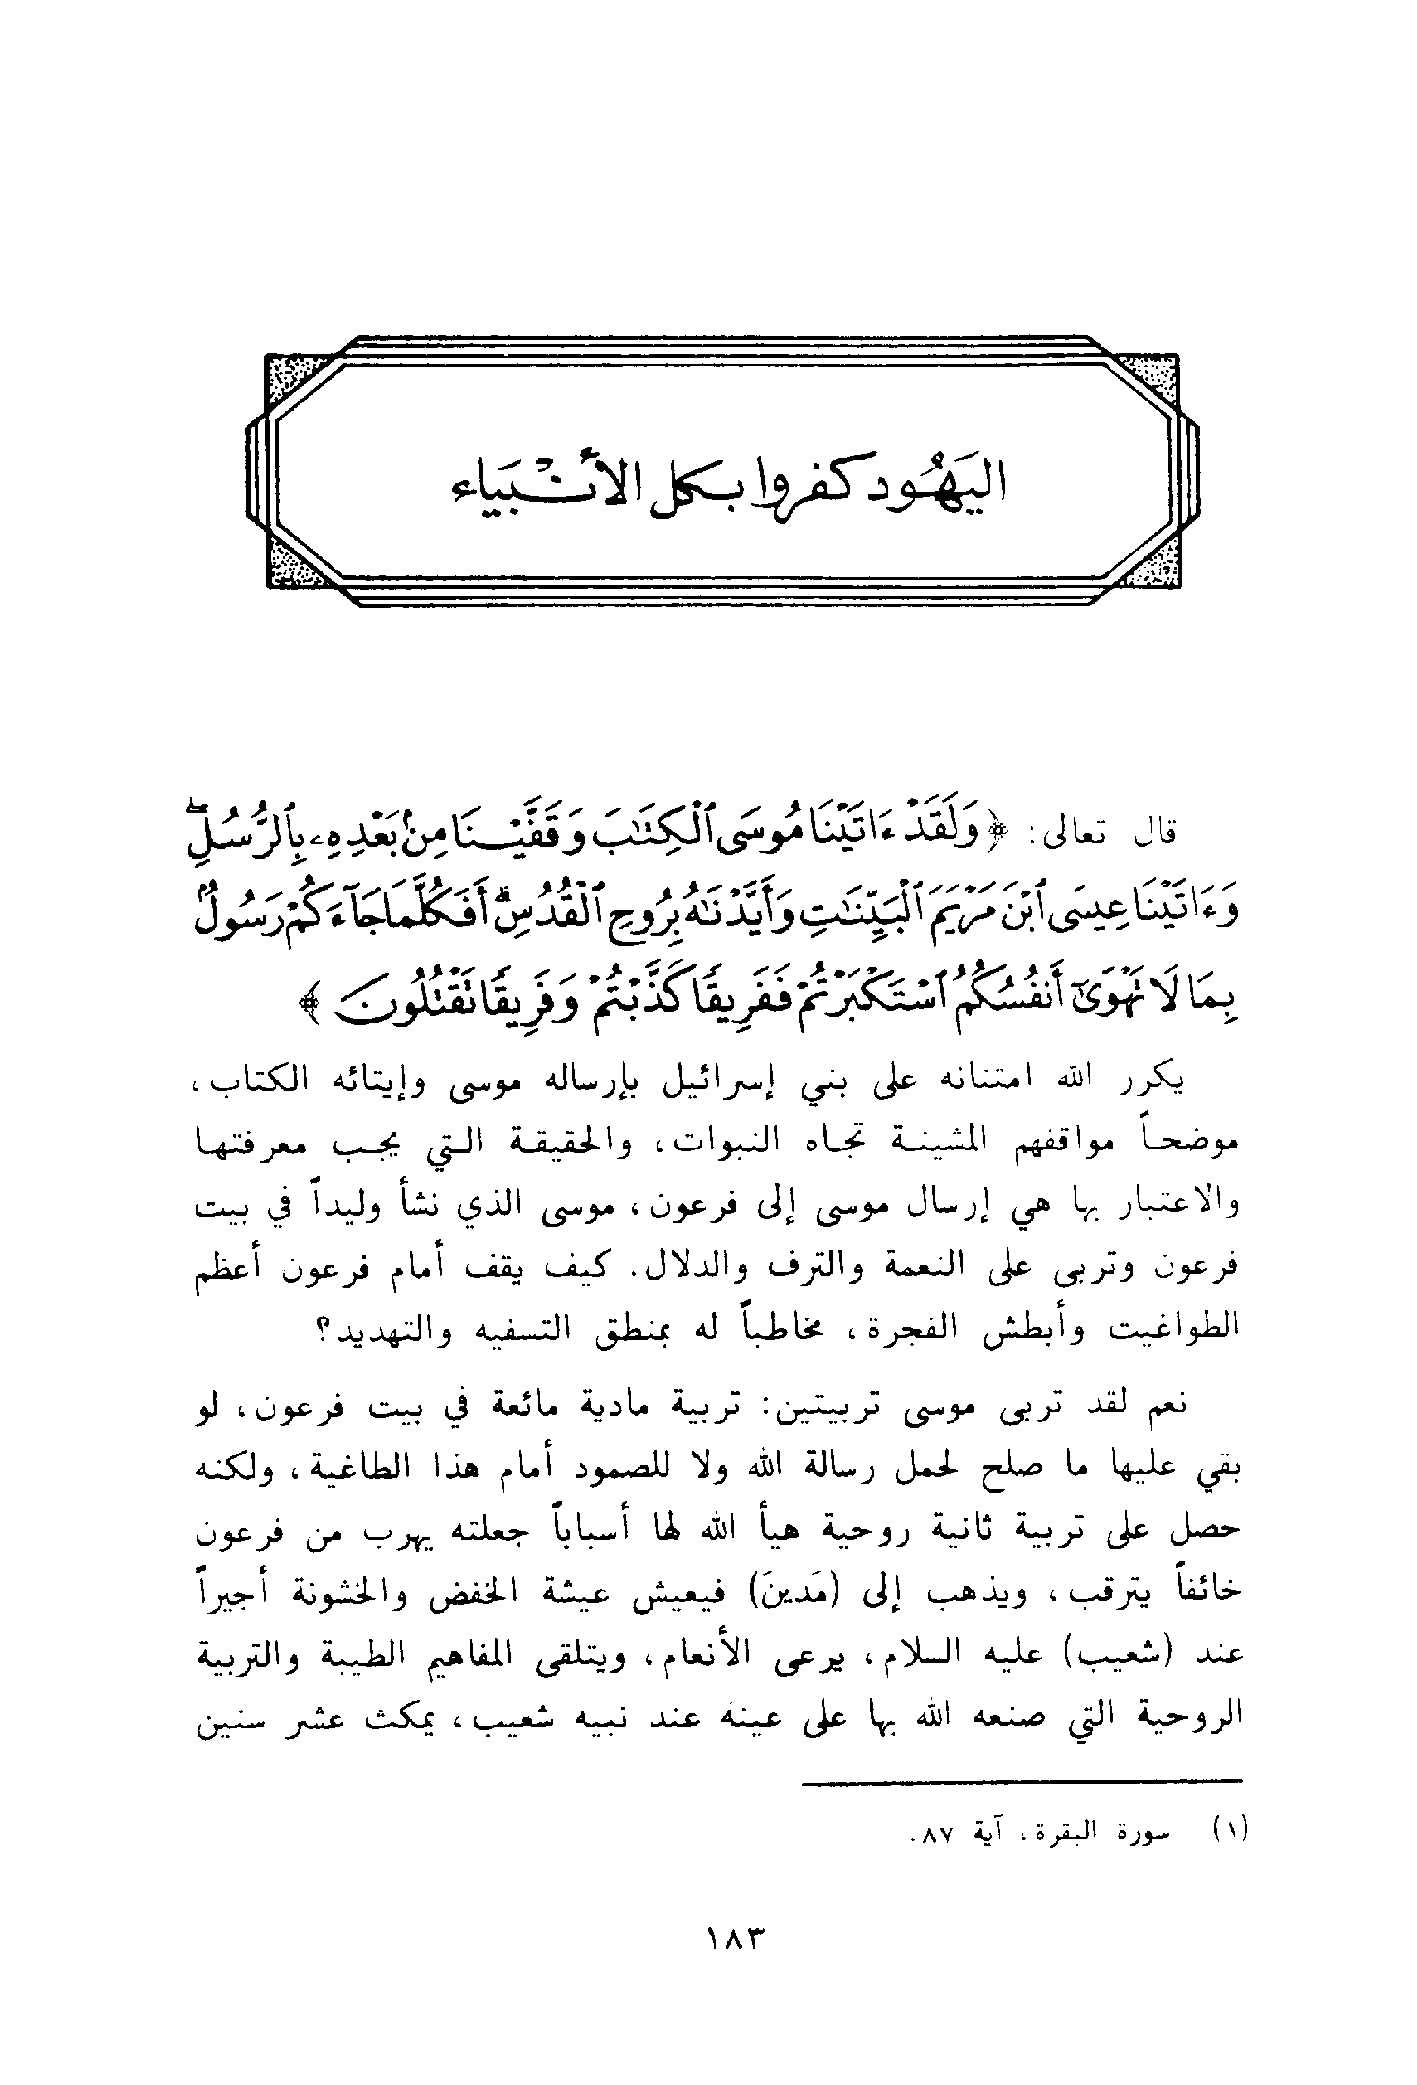 اليَهُود كفروا بكل الأنبيَاء
قال تعالى: ﴿ وَلَقَدْ ءَاتَيْنَا مُوسَى ٱلْكِتَٰبَ وَقَفَّيْنَا مِنۢ بَعْدِهِۦ بِٱلرُّسُلِۖ
وَءَاتَيْنَا عِيسَى ٱبْنَ مَرْيَمَ ٱلْبَيِّنَٰتِ وَأَيَّدْنَٰهُ بِرُوحِ ٱلْقُدُسِۗ أَفَكُلَّمَا جَآءَكُمْ رَسُولٌۢ
بِمَا لَا تَهْوَىٰٓ أَنفُسُكُمُ ٱسْتَكْبَرْتُمْ فَفَرِيقًا كَذَّبْتُمْ وَفَرِيقًا تَقْتُلُونَ ﴾
يكرر الله امتنانه على بني إسرائيل بإرساله موسى وإيتائه الكتاب،
موضحاً مواقفهم المشينة تجاه النبوات، والحقيقة التي يجب معرفتها
والاعتبار بها هي إرسال موسى إلى فرعون، موسى الذي نشأ وليداً في بيت
فرعون وتربى على النعمة والترف والدلال. كيف يقف أمام فرعون أعظم
الطواغيت وأبطش الفجرة، مخاطباً له بمنطق التسفيه والتهديد؟
نعم لقد تربى موسى تربيتين: تربية مادية مائعة في بيت فرعون، لو
بقي عليها ما صلح لحمل رسالة الله ولا للصمود أمام هذا الطاغية، ولكنه
حصل على تربية ثانية روحية هيأ الله لها أسباباً جعلته يهرب من فرعون
خائفاً يترقب، ويذهب إلى (مَدينَ) فيعيش عيشة الخفض والخشونة أجيراً
عند (شعيب) عليه السلام، يرعى الأنعام، ويتلقى المفاهيم الطيبة والتربية
الروحية التي صنعه الله بها على عينه عند نبيه شعيب، يمكث عشر سنين
(١) سورة البقرة، آية ٨٧.
١٨٣